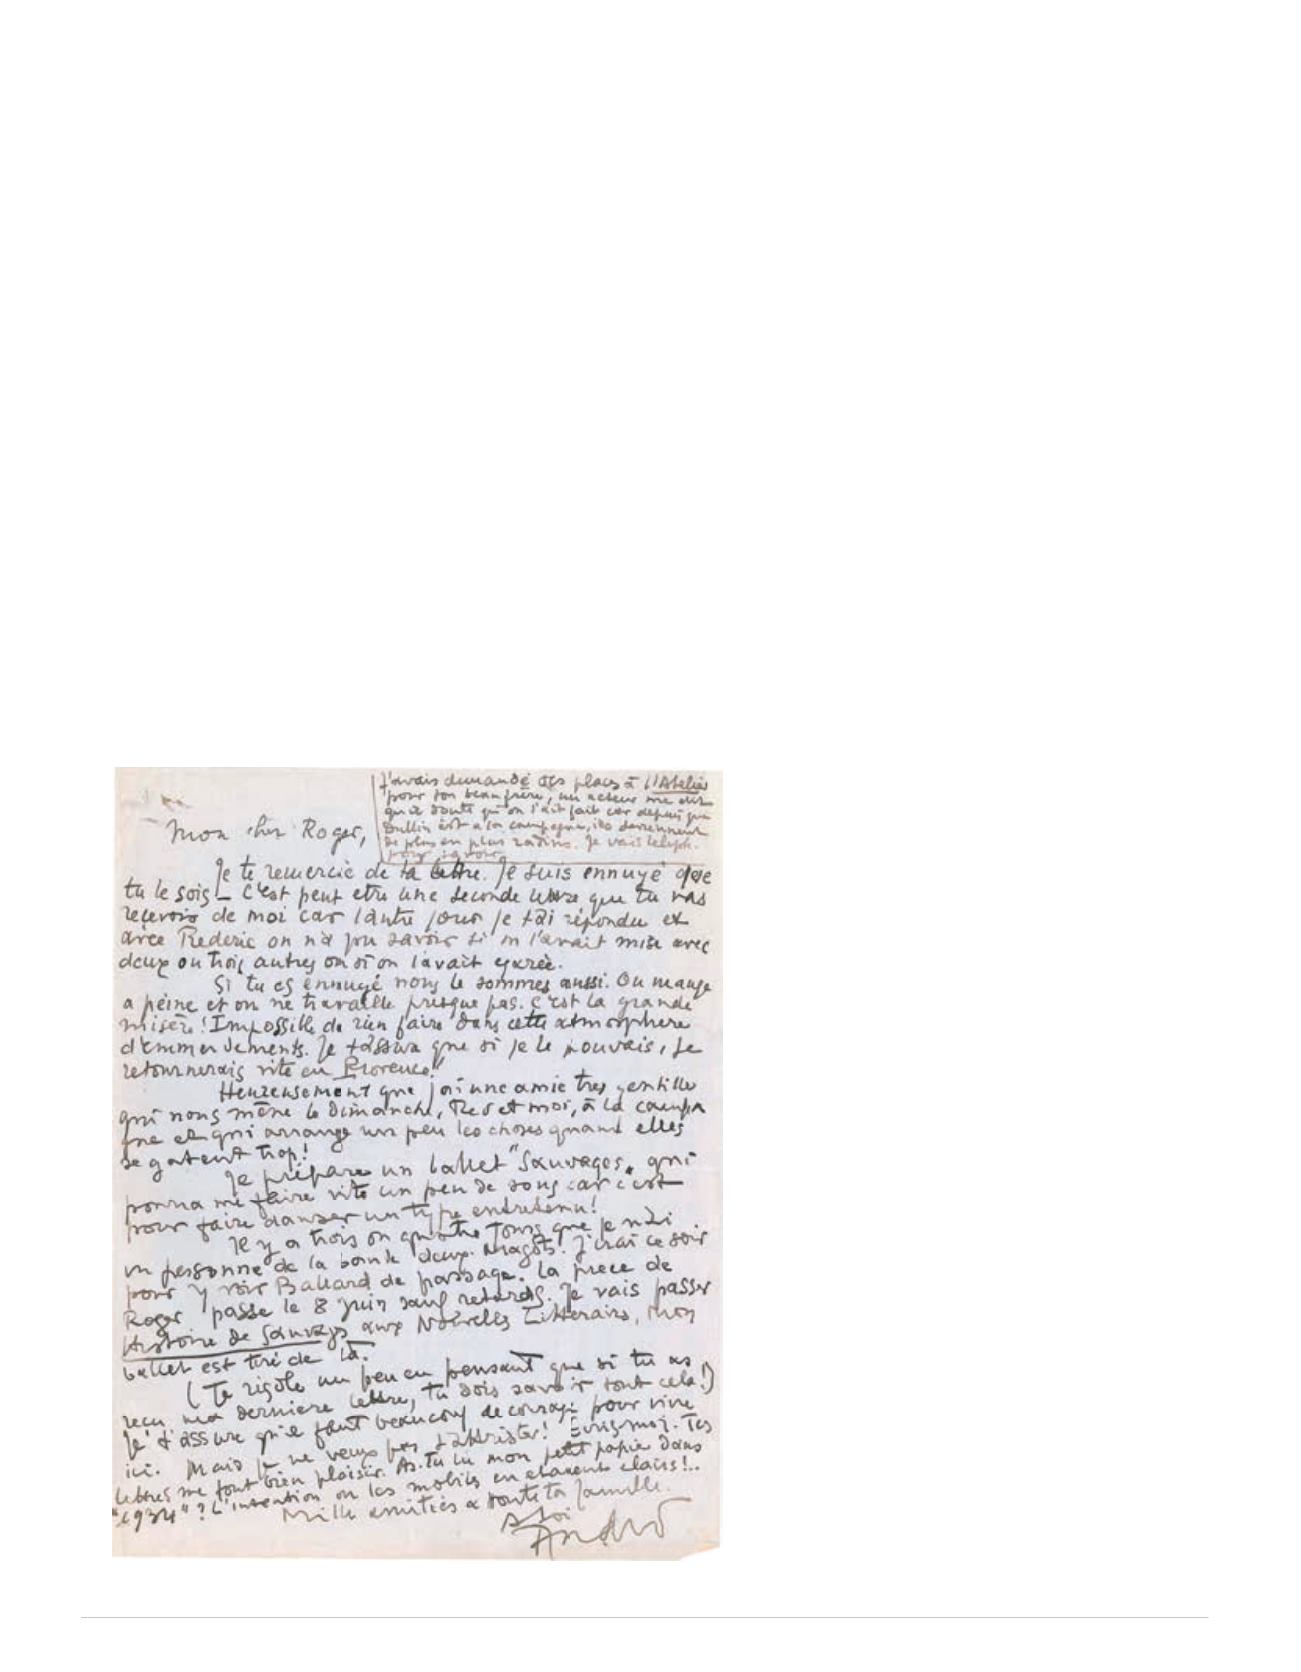 J'avais demandé des places à l'Atelier
pour ton beau frère, un acteur me dit
qu'il doute qu'on l'ait fait car depuis que
Dullin est à la campagne, ils deviennent
de plus en plus radins. Je vais téléph.
pour savoir
Mon cher Roger,
Je te remercie de ta lettre. Je suis ennuyé que
tu le sois – C'est peut etre une seconde lettre que tu vas
recevoir de moi car l'autre jour je t'ai répondu et
avec Frederic on n'a pu savoir si on l'avait mise avec
deux ou trois autres ou si on l'avait egarée.
Si tu es ennuyé nous le sommes aussi. On mange
a peine et on ne travaille presque pas. C'est la grande
misère! Impossible de rien faire dans cette atmosphere
d'emmerdements. Je t'assure que si je le pouvais, je
retournerais vite en Provence!
Heureusement que j'ai une amie tres gentille
qui nous mène le Dimanche, Fred et moi, à la campa
gne et qui arrange un peu les choses quand elles
se gatent trop!
Je prépare un ballet "Sauvages" qui
pourra me faire vite un peu de sous car c'est
pour faire danser un type entretenu!
Il y a trois ou quatre jours que je n'ai
vu personne de la bande deux-Magots. J'irai ce soir
pour y voir Ballard de passage. La piece de
Roger passe le 8 juin sauf retards. Je vais passer
Histoire de Sauvages aux Nouvelles Litteraires, mon
ballet est tiré de là.
(Je rigole un peu en pensant que si tu as
recu ma derniere lettre, tu dois savoir tout cela!)
Je t'assure qu'il faut beaucoup de courage pour vivre
ici. Mais je ne veux pas t'attrister! Ecris moi. Tes
lettres me font bien plaisir. As-tu lu mon petit papier dans
"1934"? L'intention ou les mobiles en etaient clairs!..
Mille amitiés a toute ta famille.
A toi
André